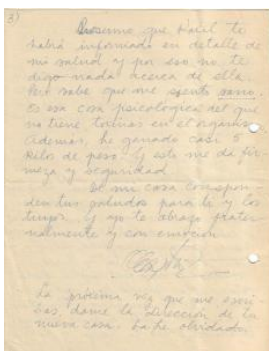 3)
Presumo que Raúl te
habrá informado en detalle de
mi salud y por eso no te
digo nada acerca de ella.
Pero sabe que me siento sano.
Es esa cosa psicológica del que
no tiene toxinas en el organismo.
Además, he ganado casi 5
kilos de peso. Y esto me da fir
meza y seguridad.
De mi casa correspon-
den tus saludos para ti y los
tuyos. Y yo te abrazo frater
nalmente y con emoción
La próxima vez que me escri
bas, dame la dirección de tu
nueva casa. La he olvidado.